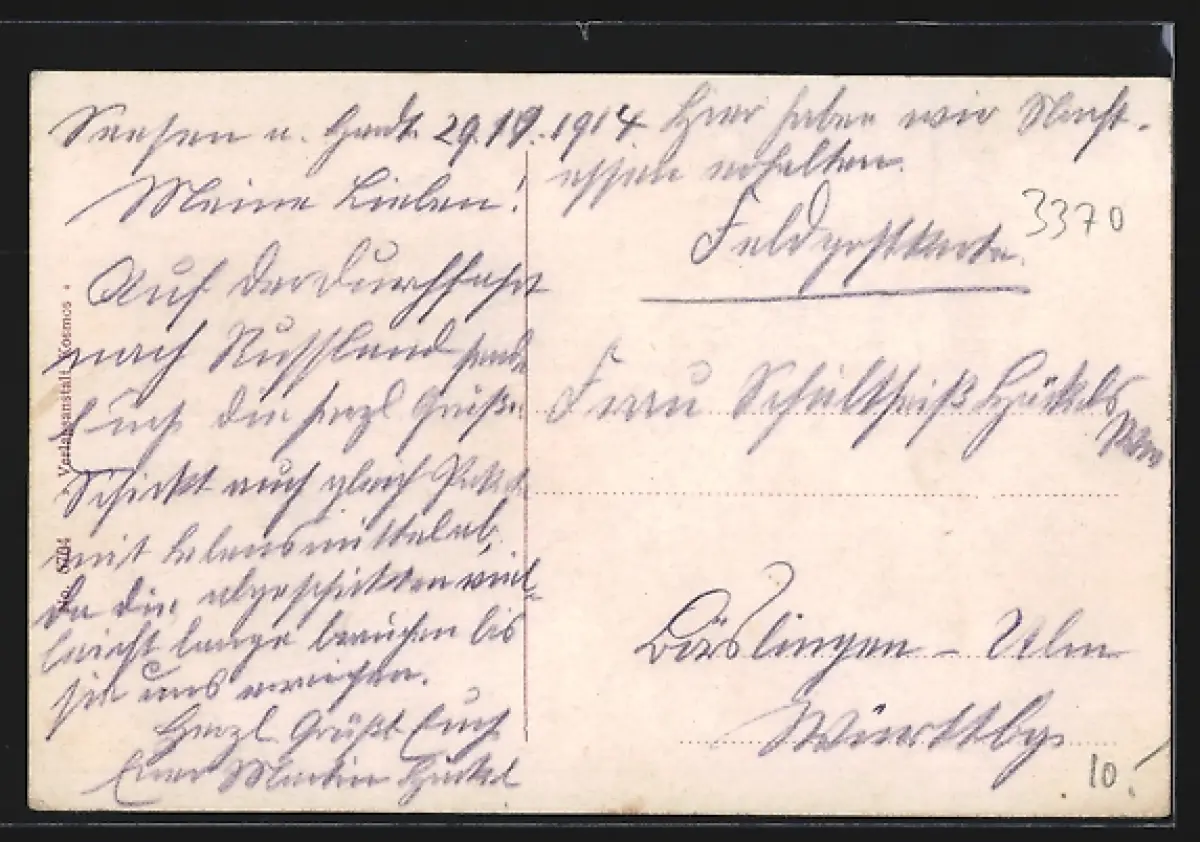 Seesen a. Harz 29.11.1914
Meine Lieben!
Auf der Durchfahrt
nach Russland sende
Euch die herzl Grüße.
Schickt auch gleich Paket
mit Lebensmittel ab,
da die abgeschickten viel-
leicht lange brauchen bis
sie uns erreichen.
Herzl. Grüßt Euch
Euer Martin Hückel
Hier haben wir Nacht-
essen erhalten.
Feldpostkarte.
3370
Frau Schultheiß Hückels
Wwe
Börslingen - Ulm
Württbg.
10.
No. 6704
Verlagsanstalt Kosmos